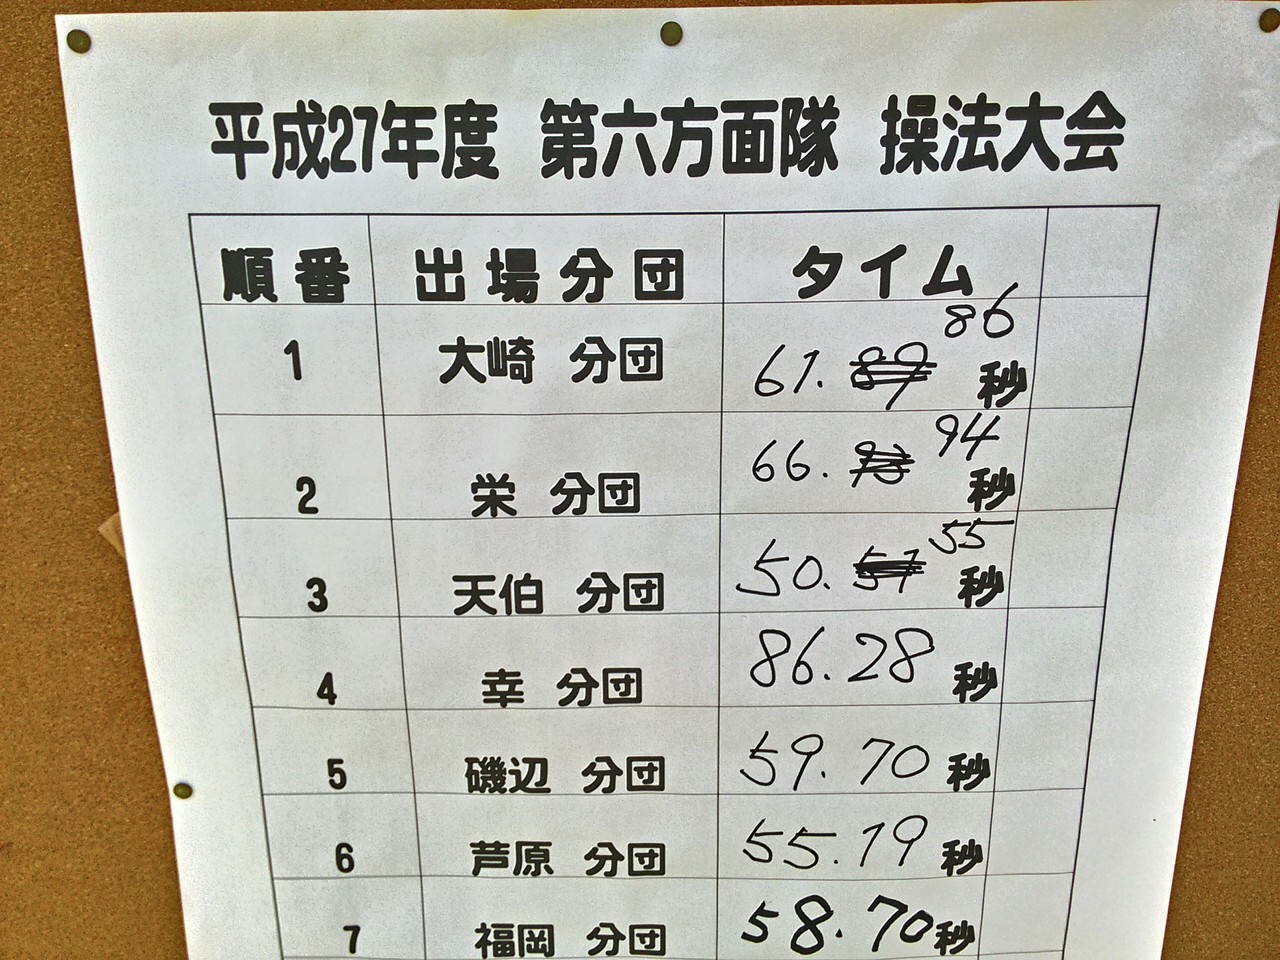 平成27年度 第六方面隊 操法大会
順番 出場分団 タイム
1 大崎 分団 61. 89 86 秒
2 栄 分団 66. 94 秒
3 天伯 分団 50. 51 55 秒
4 幸 分団 86.28 秒
5 磯辺 分団 59.70 秒
6 芦原 分団 55.19 秒
7 福岡 分団 58.70 秒